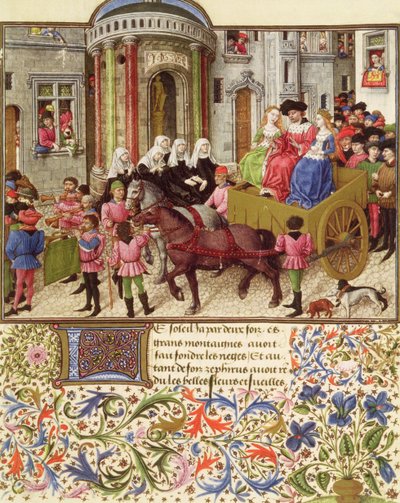 LE soleil ja par deux foiz es
grans montaignes avoit
fait fondre les neges Et au
tant de foiz zephirus avoit re
du les belles fleurs et fueilles